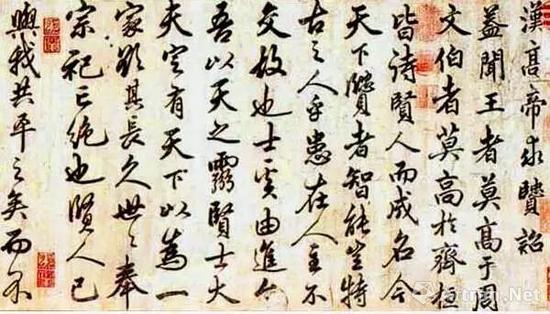 漢高帝求賢詔
蓋聞王者莫高于周
文伯者莫高於齊桓
皆待賢人而成名今
天下賢者智能豈特
古之人乎患在人主不
交故也士奚由進今
吾以天之靈賢士大
夫定有天下以為一
家欲其長久世々奉
宗祀亡絕也賢人已
與我共平之矣而不
Artron.Net